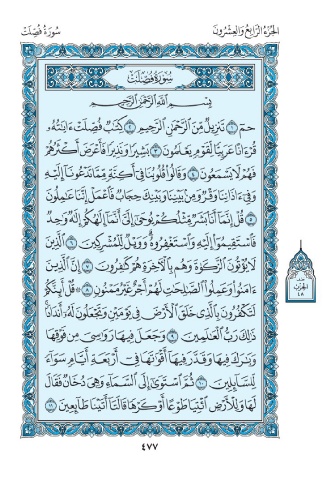 الجزء الرابع والعشرون
سورة فصلت
سُورَةُ فُصِّلَتْ
بِسْمِ اللَّهِ الرَّحْمَٰنِ الرَّحِيمِ
حمٓ ١ تَنزِيلٌ مِّنَ الرَّحْمَٰنِ الرَّحِيمِ ٢ كِتَٰبٌ فُصِّلَتْ ءَايَٰتُهُۥ
قُرْءَانًا عَرَبِيًّا لِّقَوْمٍ يَعْلَمُونَ ٣ بَشِيرًا وَنَذِيرًا فَأَعْرَضَ أَكْثَرُهُمْ
فَهُمْ لَا يَسْمَعُونَ ٤ وَقَالُوا۟ قُلُوبُنَا فِىٓ أَكِنَّةٍ مِّمَّا تَدْعُونَآ إِلَيْهِ
وَفِىٓ ءَاذَانِنَا وَقْرٌ وَمِنۢ بَيْنِنَا وَبَيْنِكَ حِجَابٌ فَٱعْمَلْ إِنَّنَا عَٰمِلُونَ
٥ قُلْ إِنَّمَآ أَنَا۠ بَشَرٌ مِّثْلُكُمْ يُوحَىٰٓ إِلَىَّ أَنَّمَآ إِلَٰهُكُمْ إِلَٰهٌ وَٰحِدٌ
فَٱسْتَقِيمُوٓا۟ إِلَيْهِ وَٱسْتَغْفِرُوهُ وَوَيْلٌ لِّلْمُشْرِكِينَ ٦ ٱلَّذِينَ
لَا يُؤْتُونَ ٱلزَّكَوٰةَ وَهُم بِٱلْءَاخِرَةِ هُمْ كَٰفِرُونَ ٧ إِنَّ ٱلَّذِينَ
ءَامَنُوا۟ وَعَمِلُوا۟ ٱلصَّٰلِحَٰتِ لَهُمْ أَجْرٌ غَيْرُ مَمْنُونٍ ٨ ۞ قُلْ أَئِنَّكُمْ
لَتَكْفُرُونَ بِٱلَّذِى خَلَقَ ٱلْأَرْضَ فِى يَوْمَيْنِ وَتَجْعَلُونَ لَهُۥٓ أَندَادًا
ذَٰلِكَ رَبُّ ٱلْعَٰلَمِينَ ٩ وَجَعَلَ فِيهَا رَوَٰسِىَ مِن فَوْقِهَا
وَبَٰرَكَ فِيهَا وَقَدَّرَ فِيهَآ أَقْوَٰتَهَا فِىٓ أَرْبَعَةِ أَيَّامٍ سَوَآءً
لِّلسَّآئِلِينَ ١٠ ثُمَّ ٱسْتَوَىٰٓ إِلَى ٱلسَّمَآءِ وَهِىَ دُخَانٌ فَقَالَ
لَهَا وَلِلْأَرْضِ ٱئْتِيَا طَوْعًا أَوْ كَرْهًا قَالَتَآ أَتَيْنَا طَآئِعِينَ ١١
الحزب
٤٨
٤٧٧